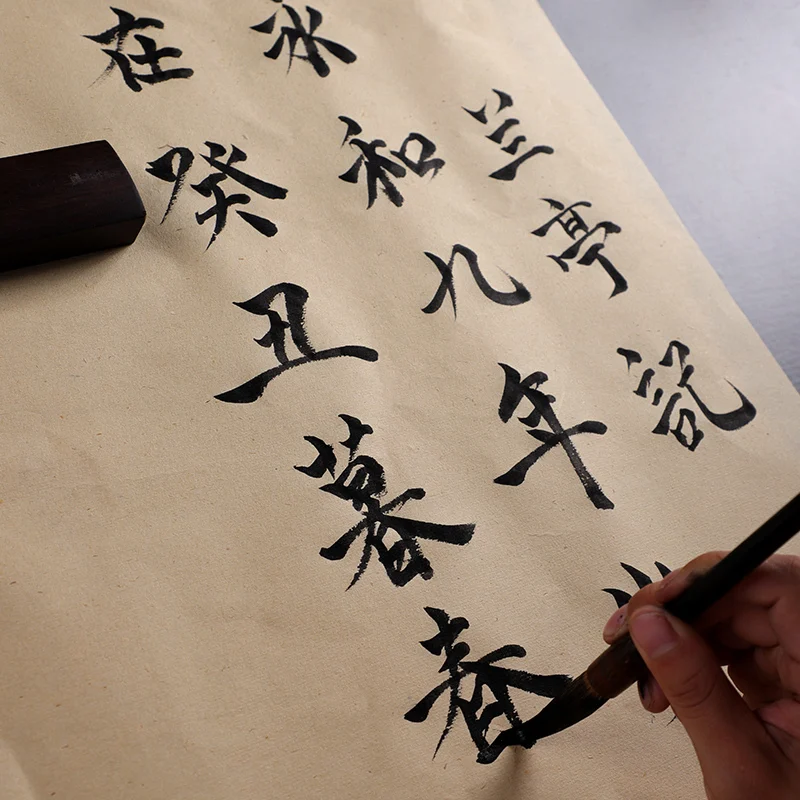 兰亭記
永和九年
在癸丑暮春